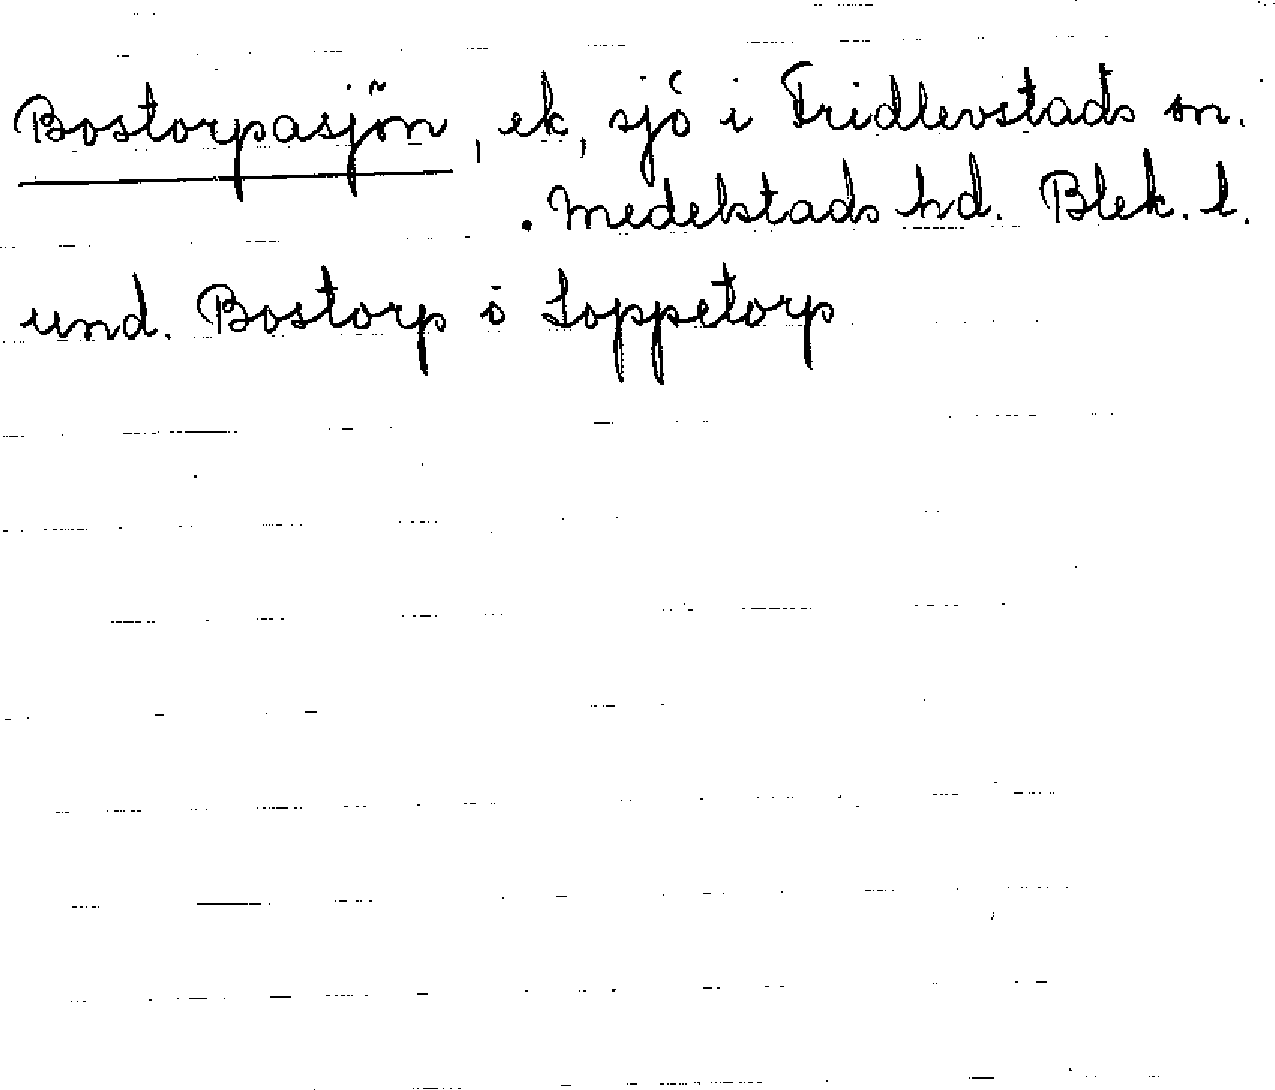 Bostorpasjön, ek, sjö i Fridlevstads sn.
. Medelstads hd. Blek. l.
und. Bostorp o Loppetorp